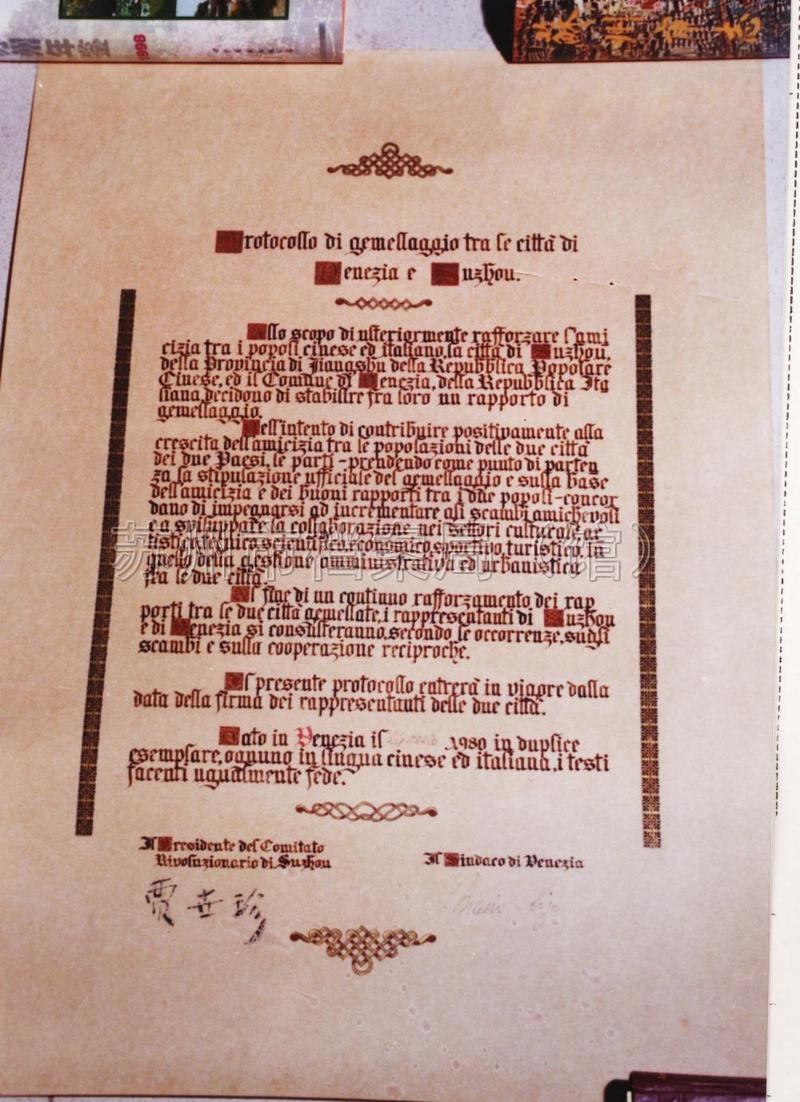 1998
Protocollo di gemellaggio tra le città di
Venezia e Suzhou.
Allo scopo di ulteriormente rafforzare l'ami
cizia tra i popoli cinese ed italiano, la città di Suzhou,
della Provincia di Jiangshu della Repubblica Popolare
Cinese, ed il Comune di Venezia, della Repubblica Ita
liana, decidono di stabilire fra loro un rapporto di
gemellaggio.
Nell'intento di contribuire positivamente alla
crescita dell'amicizia tra le popolazioni delle due città
dei due Paesi, le parti - prendendo come punto di parten
za la stipulazione ufficiale del gemellaggio e sulla base
dell'amicizia e dei buoni rapporti tra i due popoli - concor
dano di impegnarsi ad incrementare gli scambi amichevoli
e a sviluppare la collaborazione nei settori culturale, ar
tistico, tecnico, scientifico, economico, sportivo, turistico, in
quello della gestione amministrativa ed urbanistica
fra le due città.
苏州市档案局（馆）
Al fine di un continuo rafforzamento dei rap
porti tra le due città gemellate, i rappresentanti di Suzhou
e di Venezia si consulteranno, secondo le occorrenze, sugli
scambi e sulla cooperazione reciproche.
Il presente protocollo entrerà in vigore dalla
data della firma dei rappresentanti delle due città.
Dato in Venezia il 1980 in duplice
esemplare, ognuno in lingua cinese ed italiana, i testi
facenti ugualmente fede.
Il Presidente del Comitato
Rivoluzionario di Suzhou
Il Sindaco di Venezia
贾世珍